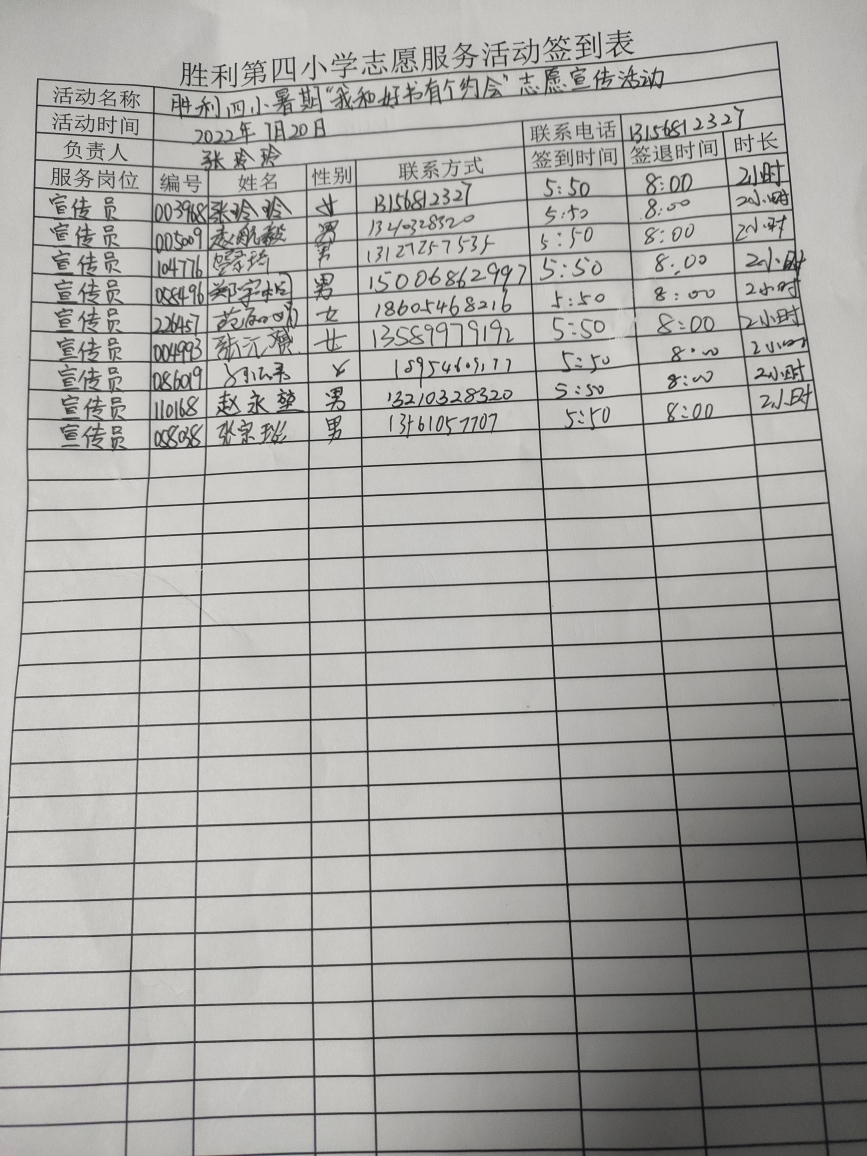 胜利第四小学志愿服务活动签到表
活动名称 胜利四小暑期“我和好书有个约会”志愿宣传活动
活动时间 2022年7月20日 联系电话 13156812327
负责人 张玲玲 签到时间 签退时间 时长
服务岗位 编号 姓名 性别 联系方式
宣传员 003968 张玲玲 女 13156812327 5:50 8:00 2小时
宣传员 005009 赵航毅 男 5:50 8:00 2小时
宣传员 104776 男 13127257535 5:50 8:00 2小时
宣传员 088496 男 15006862997 5:50 8:00 2小时
宣传员 226457 女 18605468216 5:50 8:00 2小时
宣传员 004993 女 13589979192 5:50 8:00 2小时
宣传员 086019 5:50 8:00 2小时
宣传员 110168 赵永堃 男 13210328320 5:50 8:00 2小时
宣传员 张宗 男 5:50 8:00 2小时